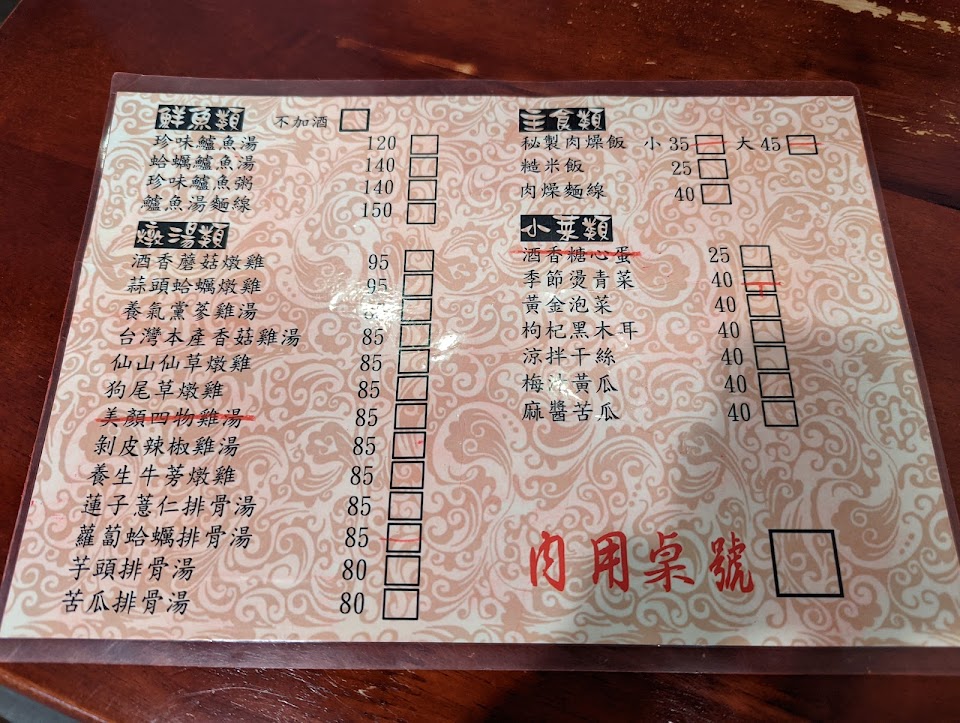 鮮魚類 不加酒
珍味鱸魚湯 120
蛤蠣鱸魚湯 140
珍味鱸魚粥 140
鱸魚湯麵線 150
燉湯類
酒香蘑菇燉雞 95
蒜頭蛤蠣燉雞 95
養氣黨蔘雞湯
台灣本產香菇雞湯 85
仙山仙草燉雞 85
狗尾草燉雞 85
美顏四物雞湯 85
剝皮辣椒雞湯 85
養生牛蒡燉雞 85
蓮子薏仁排骨湯 85
蘿蔔蛤蠣排骨湯 85
芋頭排骨湯 80
苦瓜排骨湯 80
主食類
秘製肉燥飯 小 35 大 45
糙米飯 25
肉燥麵線 40
小菜類
酒香糖心蛋 25
季節燙青菜 40
黃金泡菜 40
枸杞黑木耳 40
涼拌干絲 40
梅汁黃瓜 40
麻醬苦瓜 40
內用桌號